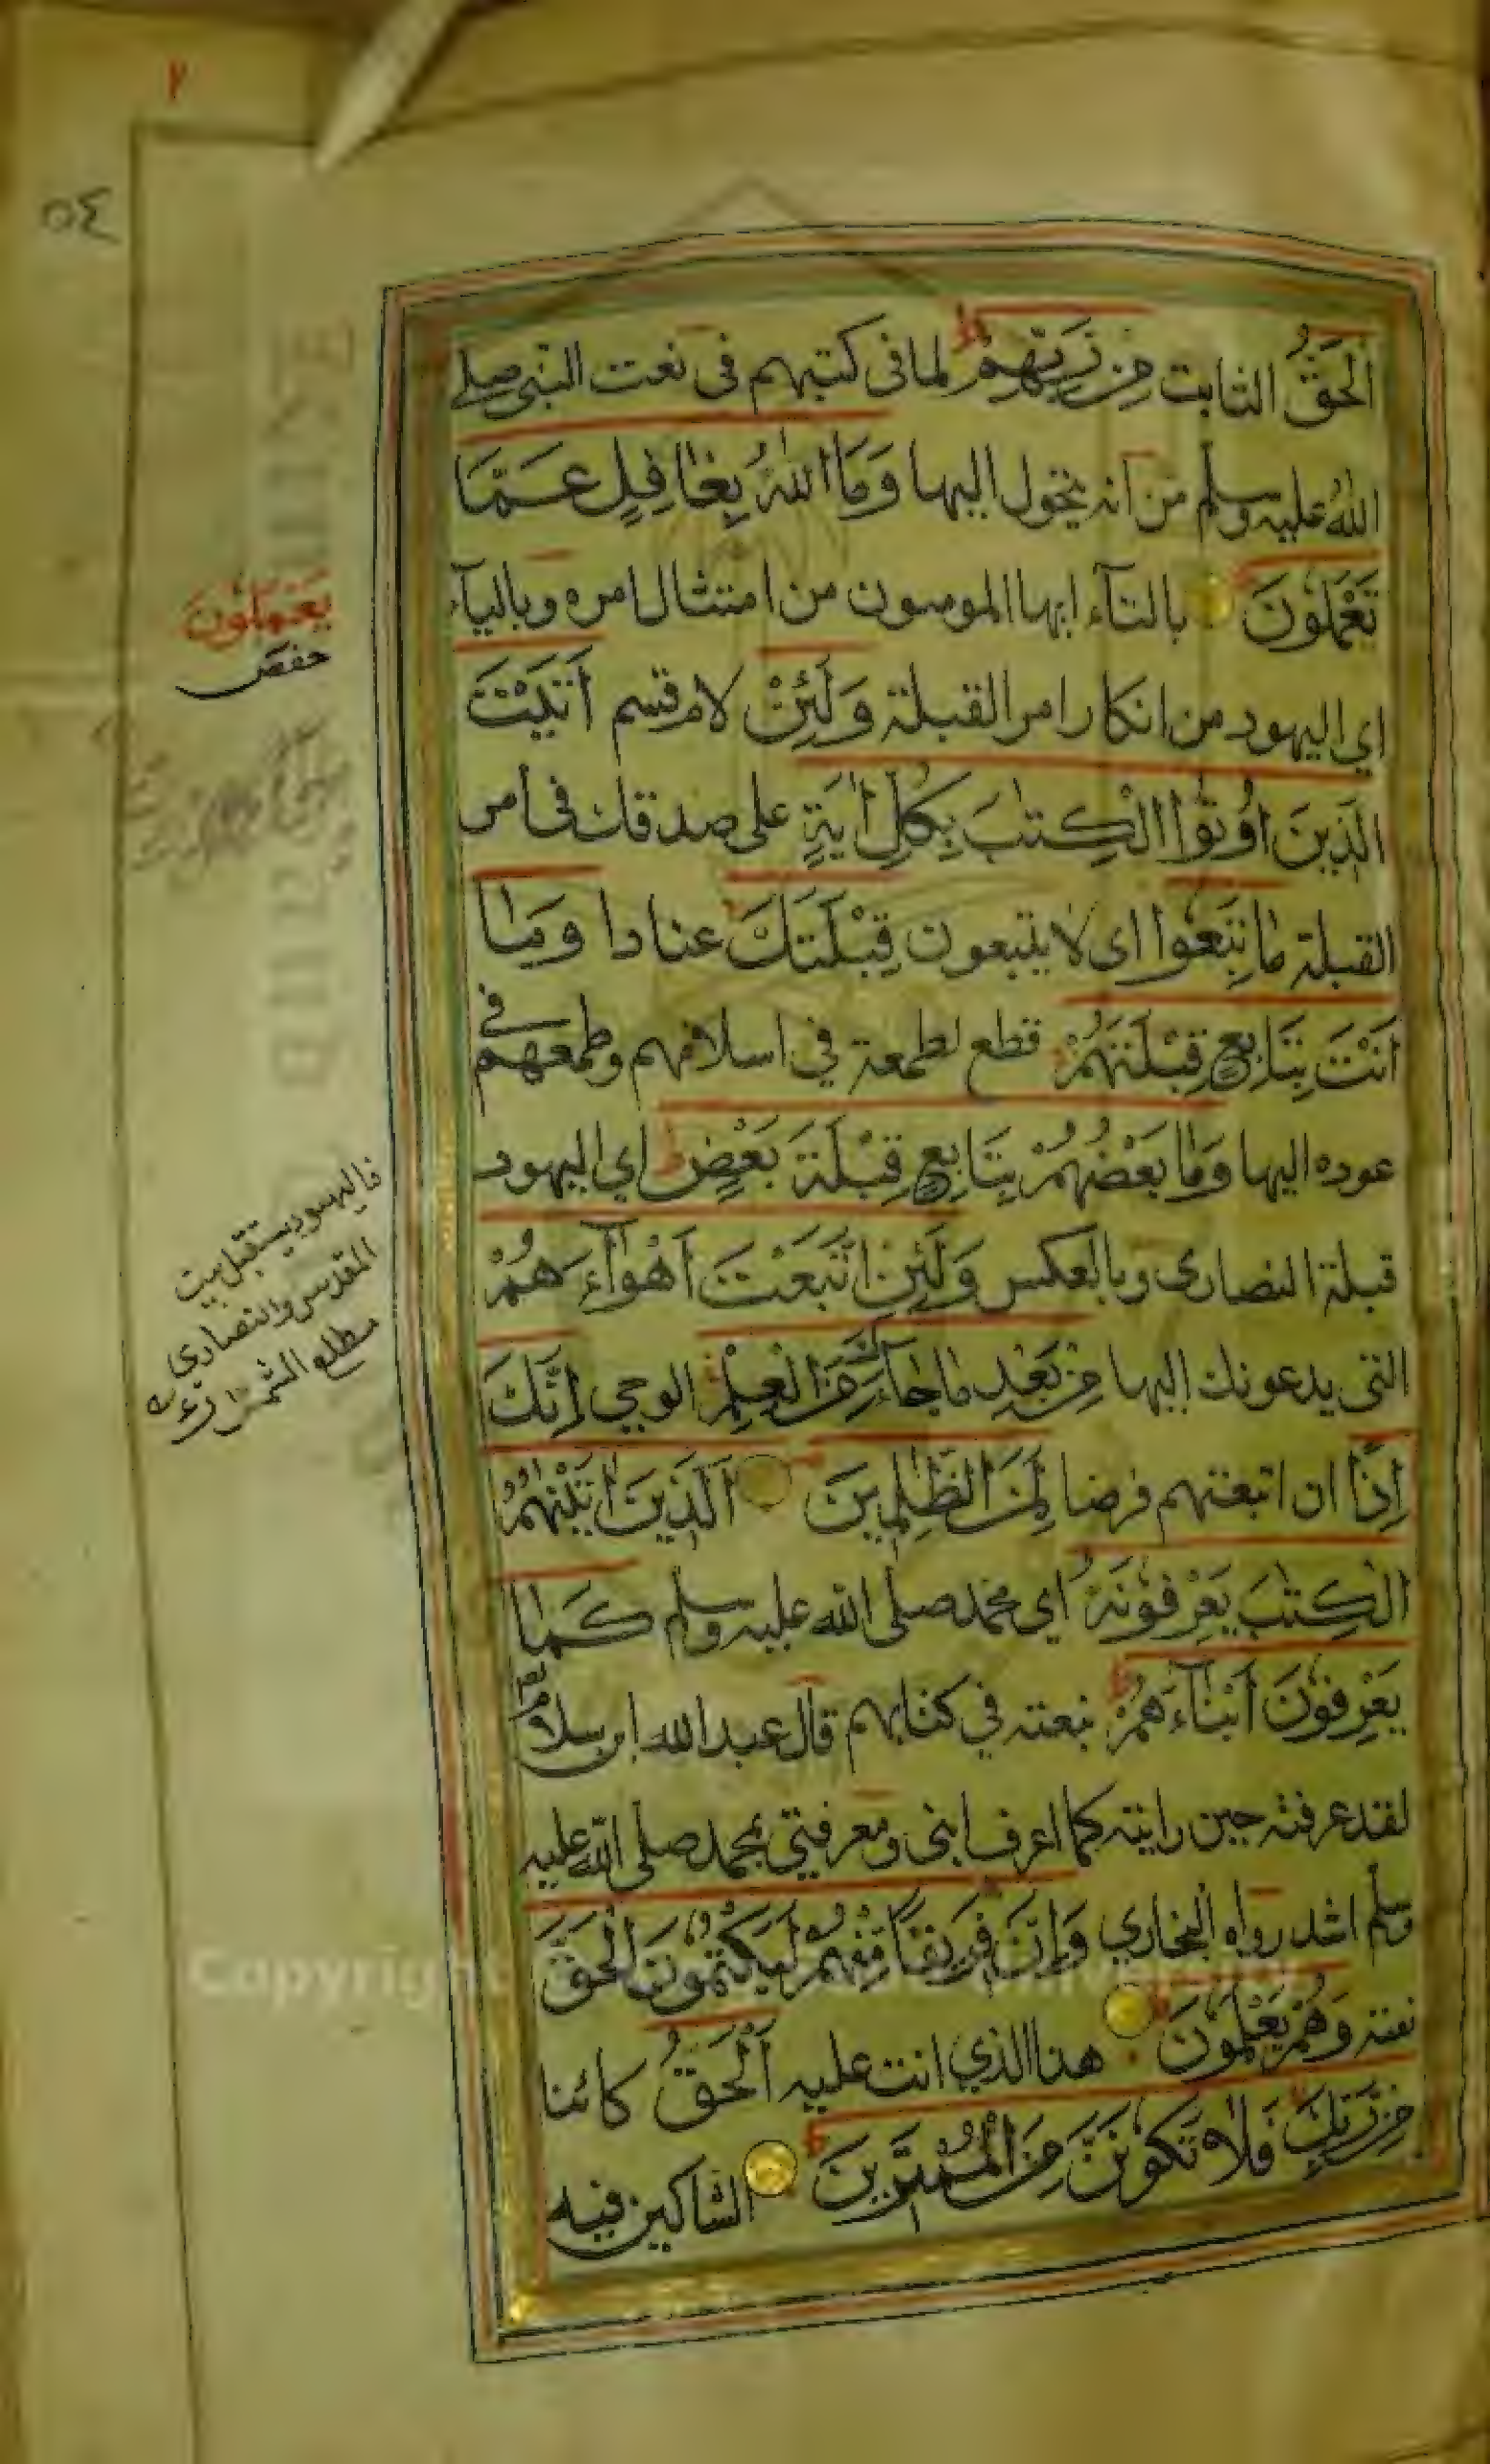 ٢
٥٤
اَلْحَقُّ الثابت مِنْ رَبِّهِمْ ط لما فى كتبهم فى نعت النبى صلى
اللهُ عليه وسلم من انه يتحول اليها وَمَا اللهُ بِغَافِلٍ عَمَّا
تَعْمَلُونَ بالتآء ايها المومنون من امتثال امره وباليآء
اي اليهود من انكار امر القبلة وَلَئِنْ لام قسم اَتَيْتَ
الَّذِينَ اُوتُوا الْكِتٰبَ بِكُلِّ اٰيَةٍ على صدقك فى أمر
القبلة مَا تَبِعُوا اى لا يتبعون قِبْلَتَكَ عنادا وَمَا
اَنْتَ بِتَابِعٍ قِبْلَتَهُمْ قطع لطمعه في اسلامهم وطمعهم في
عوده اليها وَمَا بَعْضُهُمْ بِتَابِعٍ قِبْلَةَ بَعْضٍ ط اي اليهود
قبلة النصارى وبالعكس وَلَئِنِ اتَّبَعْتَ اَهْوَآءَهُمْ
التى يدعونك اليها مِنْ بَعْدِ مَا جَآءَكَ مِنَ الْعِلْمِ الوحي اِنَّكَ
اِذًا ان اتبعتهم فرضا لَمِنَ الظّٰلِمِينَ اَلَّذِينَ اٰتَيْنٰهُمُ
الْكِتٰبَ يَعْرِفُونَهُ اي محمد صلى الله عليه وسلم كَمَا
يَعْرِفُونَ اَبْنَآءَهُمْ ط بنعته في كتابهم قال عبد الله ابن سلام
لقد عرفته حين رايته كما اعرف ابنى ومعرفتي بمحمد صلى الله عليه
وسلم اشد رواه البخاري وَاِنَّ فَرِيقًا مِنْهُمْ لَيَكْتُمُونَ الْحَقَّ
نعته وَهُمْ يَعْلَمُونَ هذا الذي انت عليه اَلْحَقُّ كائنا
مِنْ رَبِّكَ فَلَا تَكُونَنَّ مِنَ الْمُمْتَرِينَ الشاكين فيه
يَعْمَلُونَ
حفص
فاليهود يستقبل بيت
المقدس والنصارى
مطلع الشمس
Copyright